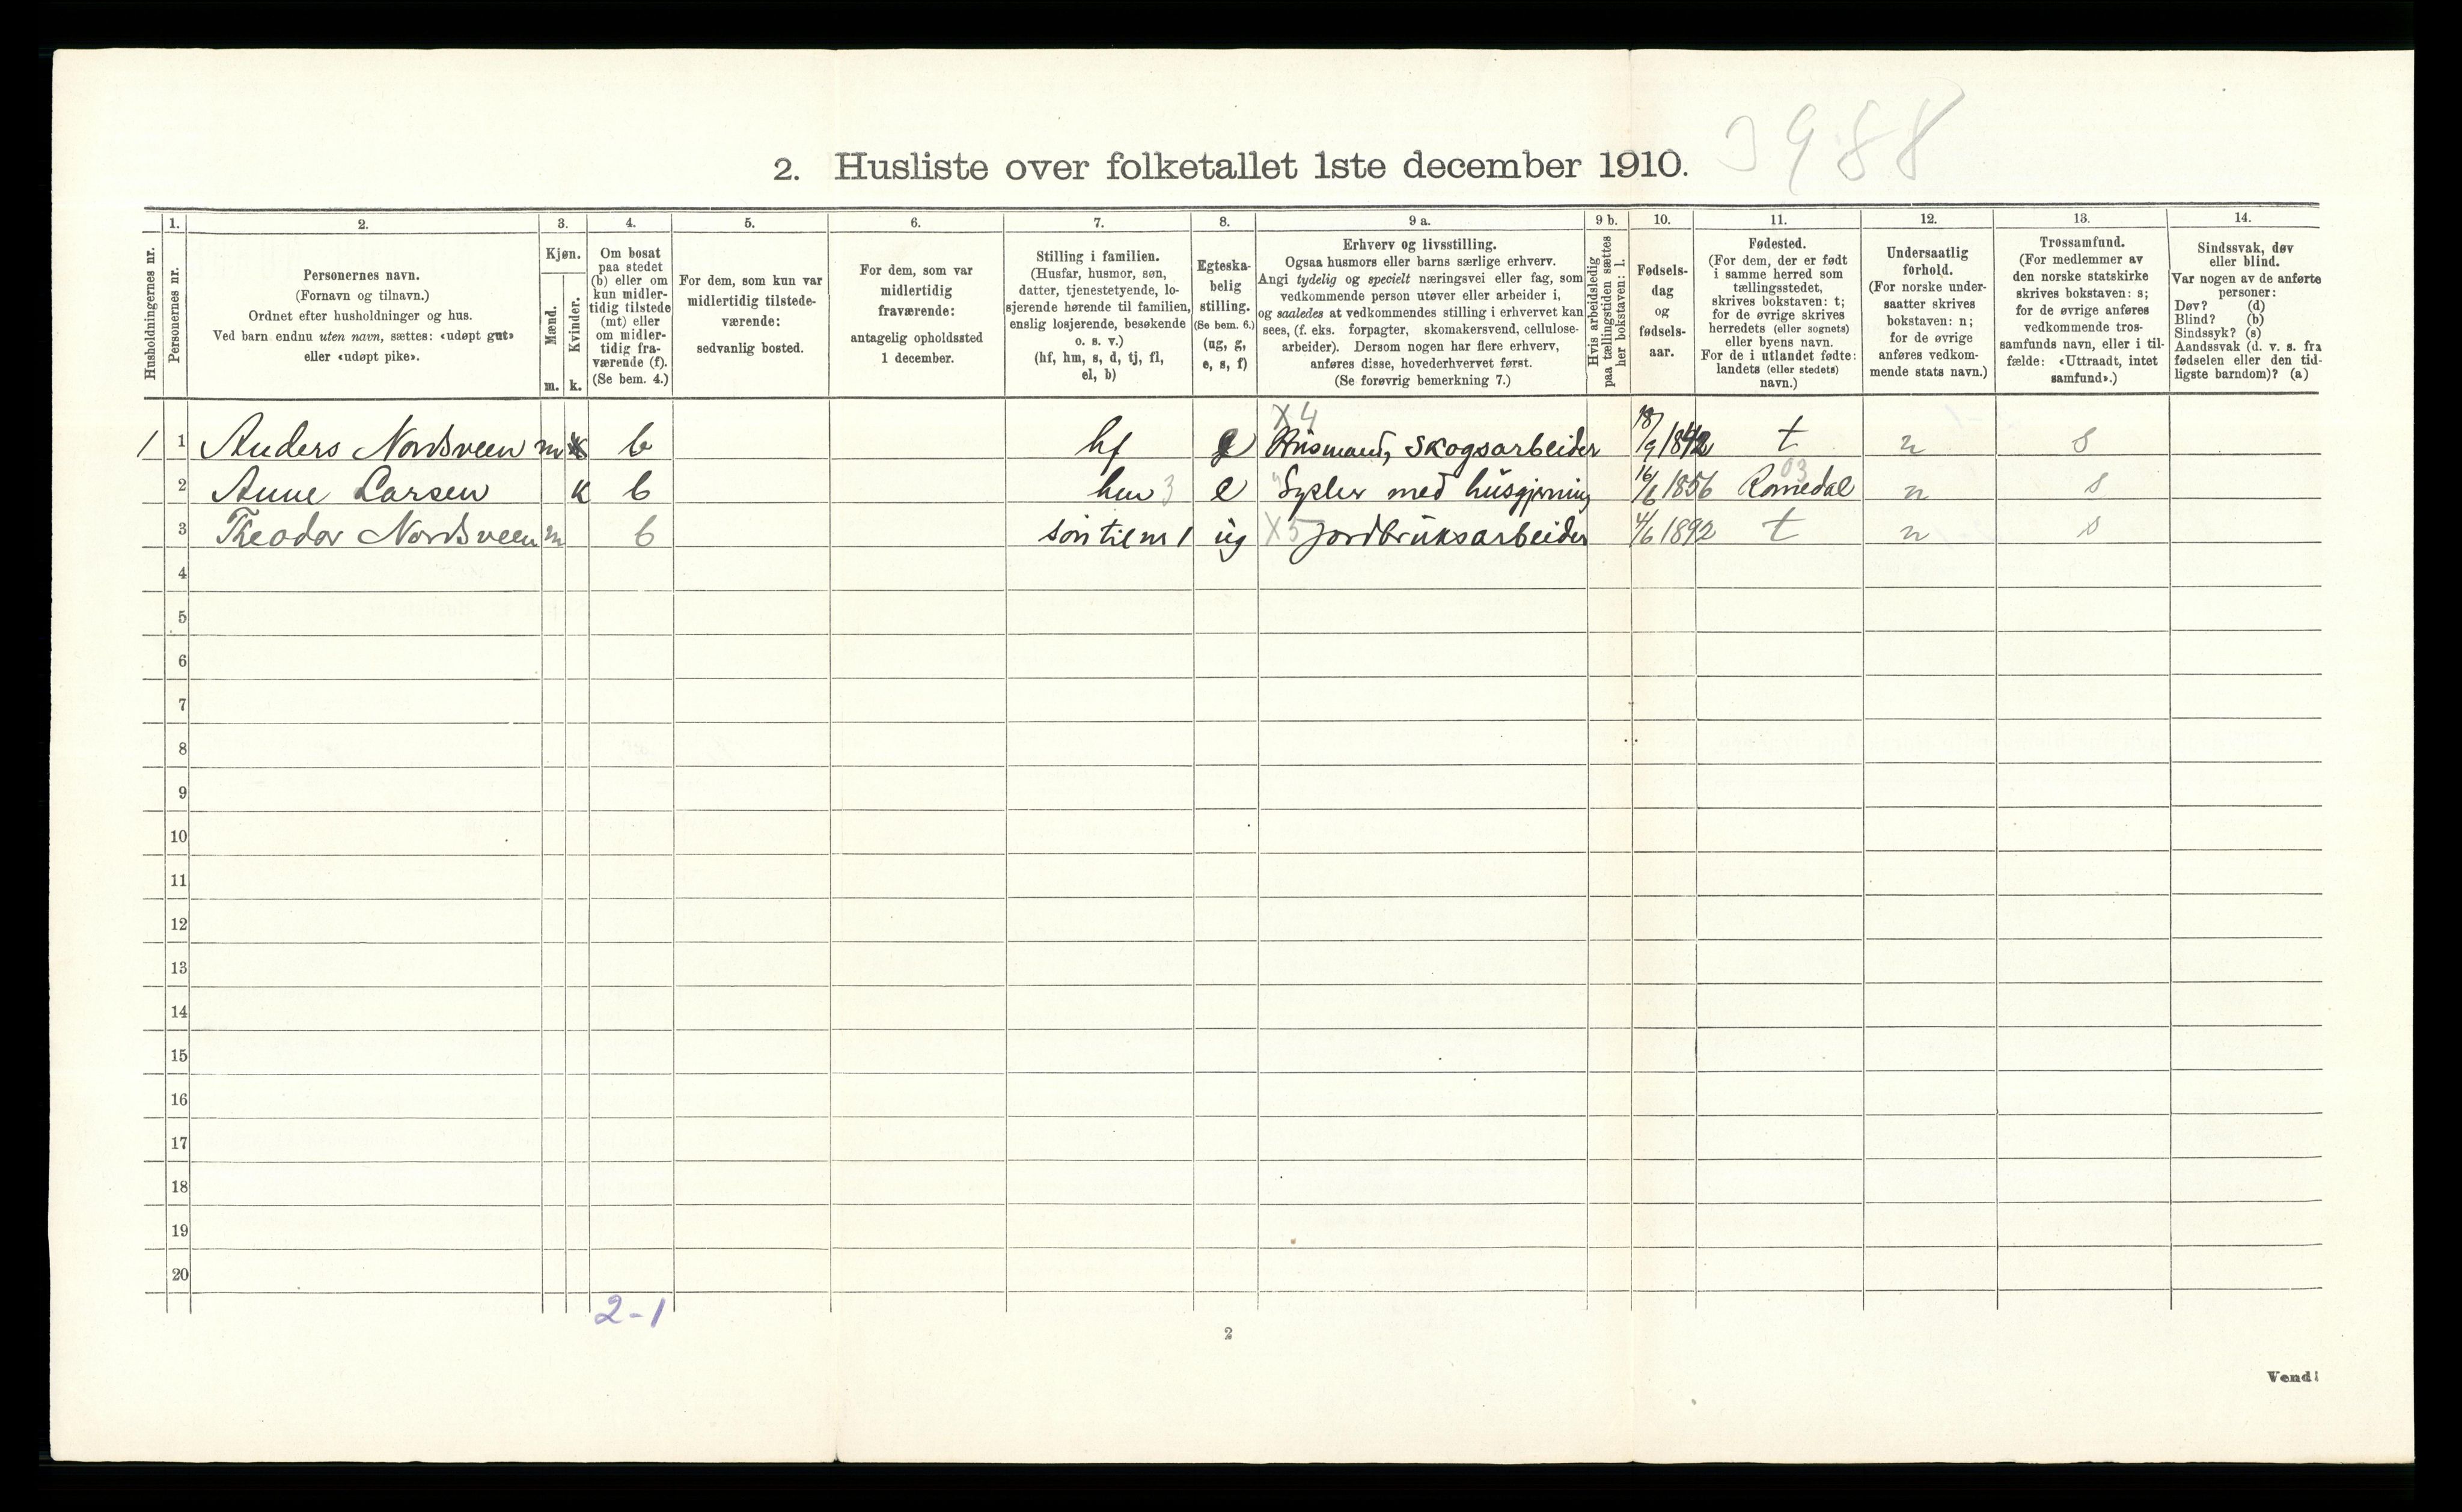 3988
2. Husliste over folketallet 1ste december 1910.
Husholdningernes nr.
1.
Personernes nr.
2.
Personernes navn.
(Fornavn og tilnavn.)
Ordnet efter husholdninger og hus.
Ved barn endnu uten navn, sættes: «udøpt gut»
eller «udøpt pike».
3.
Kjøn.
Mænd.
Kvinder.
m. k.
4.
Om bosat
paa stedet
(b) eller om
kun midler-
tidig tilstede
(mt) eller
om midler-
tidig fra-
værende (f).
(Se bem. 4.)
5.
For dem, som kun var
midlertidig tilstede-
værende:
sedvanlig bosted.
6.
For dem, som var
midlertidig
fraværende:
antagelig opholdssted
1 december.
7.
Stilling i familien.
(Husfar, husmor, søn,
datter, tjenestetyende, lo-
sjerende hørende til familien,
enslig losjerende, besøkende
o. s. v.)
(hf, hm, s, d, tj, fl,
el, b)
8.
Egteska-
belig
stilling.
(Se bem. 6.)
(ug, g,
e, s, f)
9 a.
Erhverv og livsstilling.
Ogsaa husmors eller barns særlige erhverv.
Angi tydelig og specielt næringsvei eller fag, som
vedkommende person utøver eller arbeider i,
og saaledes at vedkommendes stilling i erhvervet kan
sees, (f. eks. forpagter, skomakersvend, cellulose-
arbeider). Dersom nogen har flere erhverv,
anføres disse, hovederhvervet først.
(Se forøvrig bemerkning 7.)
9 b.
Hvis arbeidsledig
paa tællingstiden sættes
her bokstaven: l.
10.
Fødsels-
dag
og
fødsels-
aar.
11.
Fødested.
(For dem, der er født
i samme herred som
tællingsstedet,
skrives bokstaven: t;
for de øvrige skrives
herredets (eller sognets)
eller byens navn.
For de i utlandet fødte:
landets (eller stedets)
navn.)
12.
Undersaatlig
forhold.
(For norske under-
saatter skrives
bokstaven: n;
for de øvrige
anføres vedkom-
mende stats navn.)
13.
Trossamfund.
(For medlemmer av
den norske statskirke
skrives bokstaven: s;
for de øvrige anføres
vedkommende tros-
samfunds navn, eller i til-
fælde: «Uttraadt, intet
samfund».)
14.
Sindssvak, døv
eller blind.
Var nogen av de anførte
personer:
Døv? (d)
Blind? (b)
Sindssyk? (s)
Aandssvak (d. v. s. fra
fødselen eller den tid-
ligste barndom)? (a)
X 4
1 1 Anders Nordsveen m b hf Husmand, Skogsarbeider 18/9 1842 t n s
03
2 Anne Larsen k b hm 3 e med husgjerning 16/6 1856 Romedal n s
3 Theodor Nordsveen m b søn til nr 1 ug X5 jordbruksarbeider 4/6 1892 t n s
4
5
6
7
8
9
10
11
12
13
14
15
16
17
18
19
20
2-1
2
Vend!